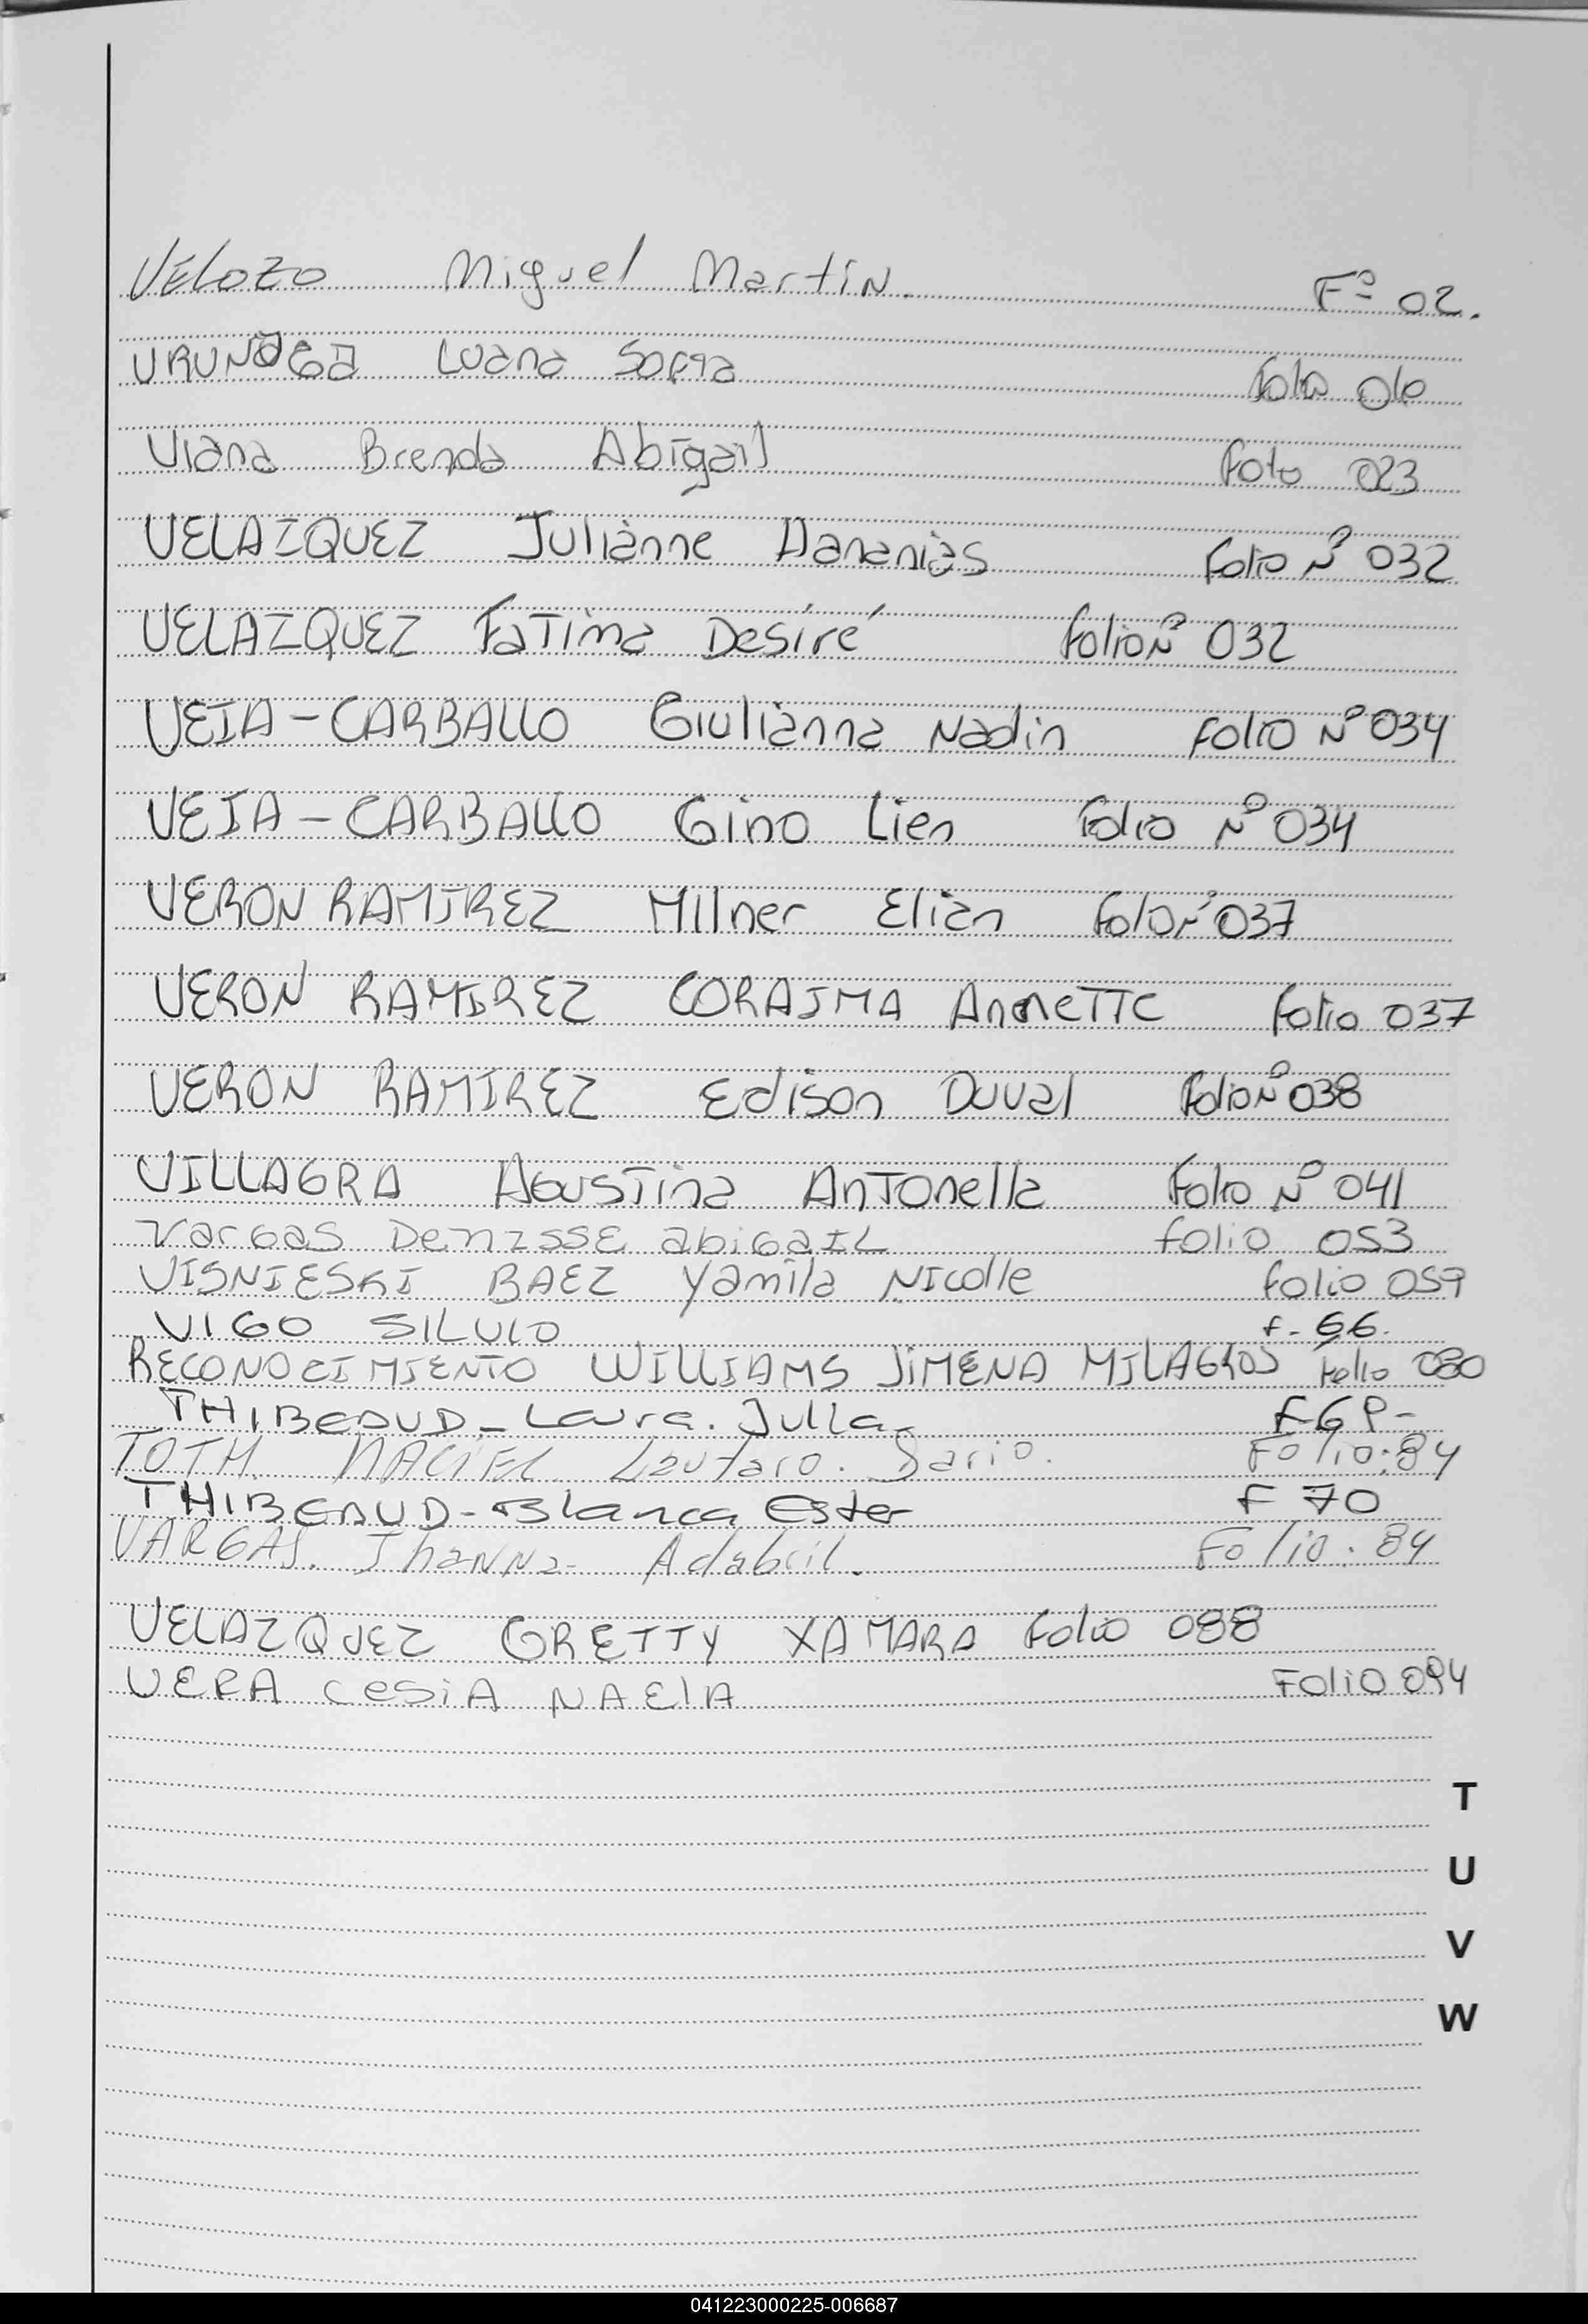 VELOZO Miguel Martín. Fº 02.
URUNAGA Luana Sofia folio 016
Viana Brenda Abigail Folio 023
VELAZQUEZ Julianne Hananias Folio Nº 032
VELAZQUEZ Fatima Desiré Folio Nº 032
VEIA - CARBALLO Giulianna Nadin Folio Nº 034
VEIA - CARBALLO Gino Lien Folio Nº 034
VERON RAMIREZ Milner Elian Folio Nº 037
VERON RAMIREZ CORAIMA Annette folio 037
VERON RAMIREZ Edison Duval Folio Nº 038
VILLAGRA Agustina Antonella Folio Nº 041
Vargas Denisse abigail folio 053
VISNIESKI BAEZ Yamila Nicolle folio 059
VIGO SILVIO f - 66.
RECONOCIMIENTO WILLIAMS JIMENA MILAGROS Folio 080
THIBEAUD - Laura. Julia - F 69 -
TOTH MACIEL Lautaro. Dario. Folio: 84
THIBEAUD - Blanca Ester F 70
VARGAS. Jhanna - Adabril. Folio: 84
VELAZQUEZ GRETTY XAMARA folio 088
VERA Cesia NAElA FOLIO 094
T
U
V
W
041223000225-006687